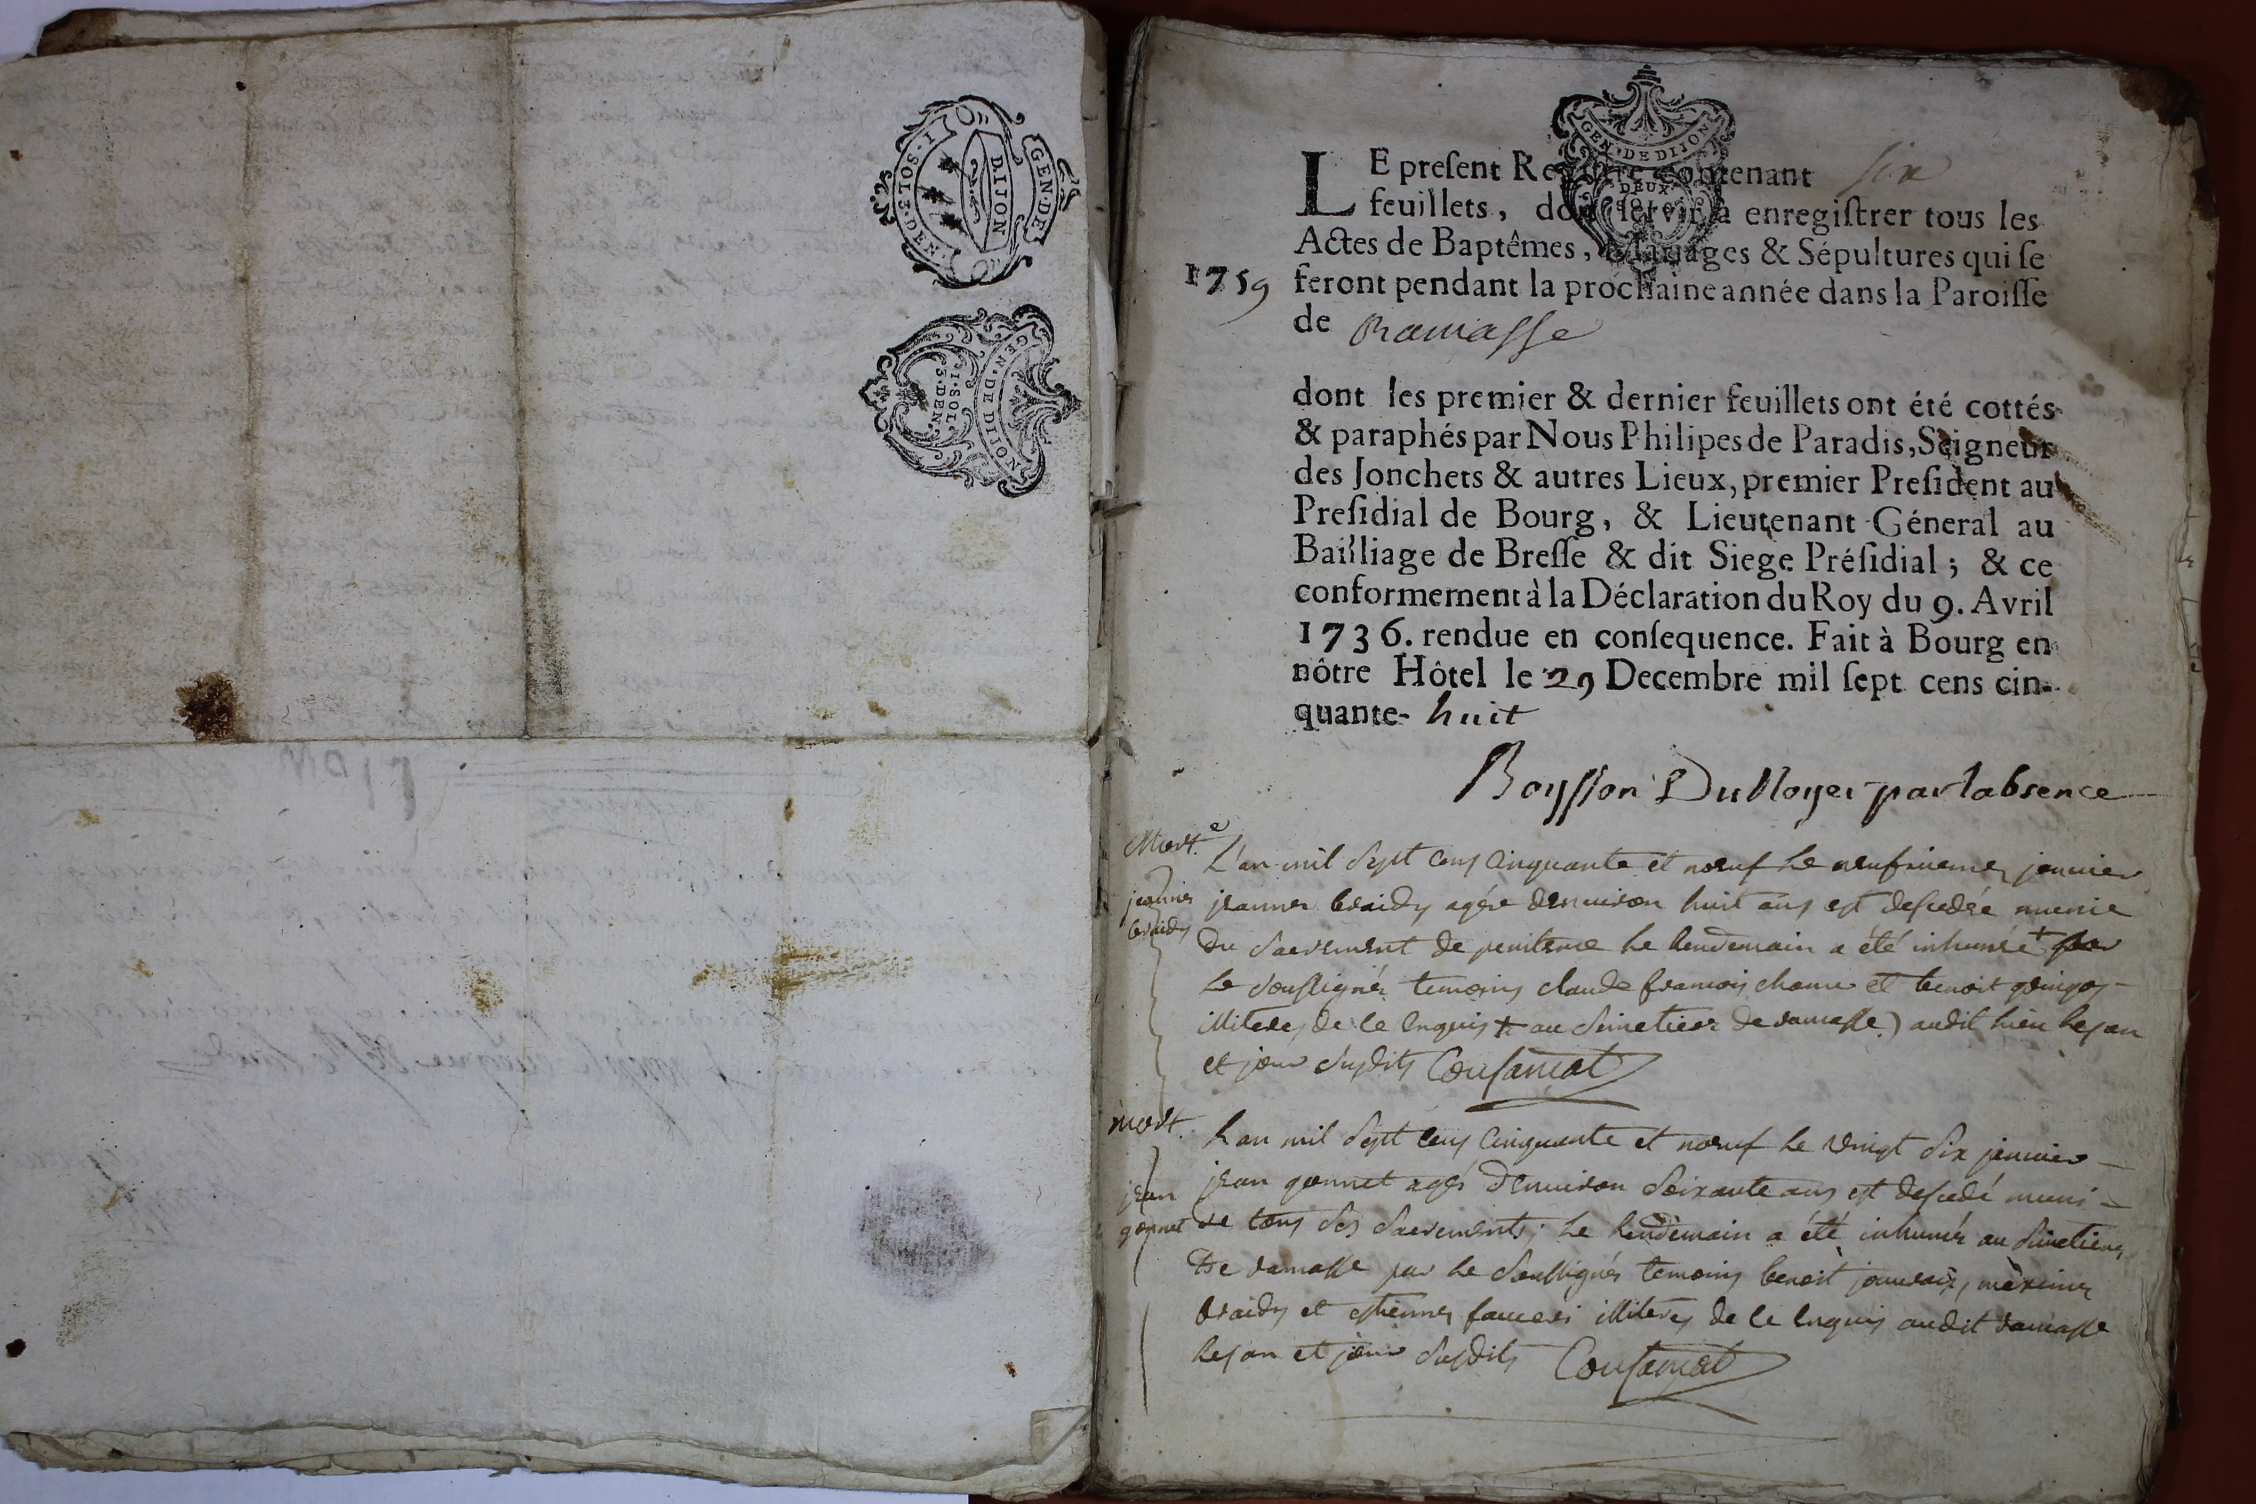 GEN·DE
DIJON
1·SOL·3·DEN·
GEN·DE DIJON
1·SOL·
3·DEN·
GEN·DE DIJON
DEUX
LE preſent Regiſtre contenant six
feuillets, dont ſervir à enregiſtrer tous les
Actes de Baptêmes, Mariages & Sépultures qui ſe
1759 feront pendant la prochaine année dans la Paroiſſe
de Ramasse
dont les premier & dernier feuillets ont été cottés
& paraphés par Nous Philipes de Paradis, Seigneur
des Jonchets & autres Lieux, premier Preſident au
Preſidial de Bourg, & Lieutenant Géneral au
Bailliage de Breſſe & dit Siege Préſidial; & ce
conformement à la Déclaration du Roy du 9. Avril
1736. rendue en conſequence. Fait à Bourg en
nôtre Hôtel le 29 Decembre mil ſept cens cin-
quante- huit
Boysson DuNoyer par labsence
Mort.e
jeanne
braidy
L'an mil sept cens cinquante et nœuf le neufvieme janvier
jeanne braidy agée denviron huit ans est decedée munie
du sacrement de penitence le lendemain a été inhumée + par
le soussigné temoins claude francois chanu et benoit
illiteres de ce enquis + au simetiere de ramasse) audit lieu les an
et jour susdits Cousançat
mort.
jean
gonnet
L'an mil sept cens cinquante et nœuf le vingt six janvier
jean gonnet agés denviron soixante ans est decedé muni
de tous ses sacrements; le lendemain a été inhumés au simetiere
de ramasse par le soussignés temoins benoit
braidy et estienne illiteres de ce enquis audit ramasse
les an et jour susdits Cousançat